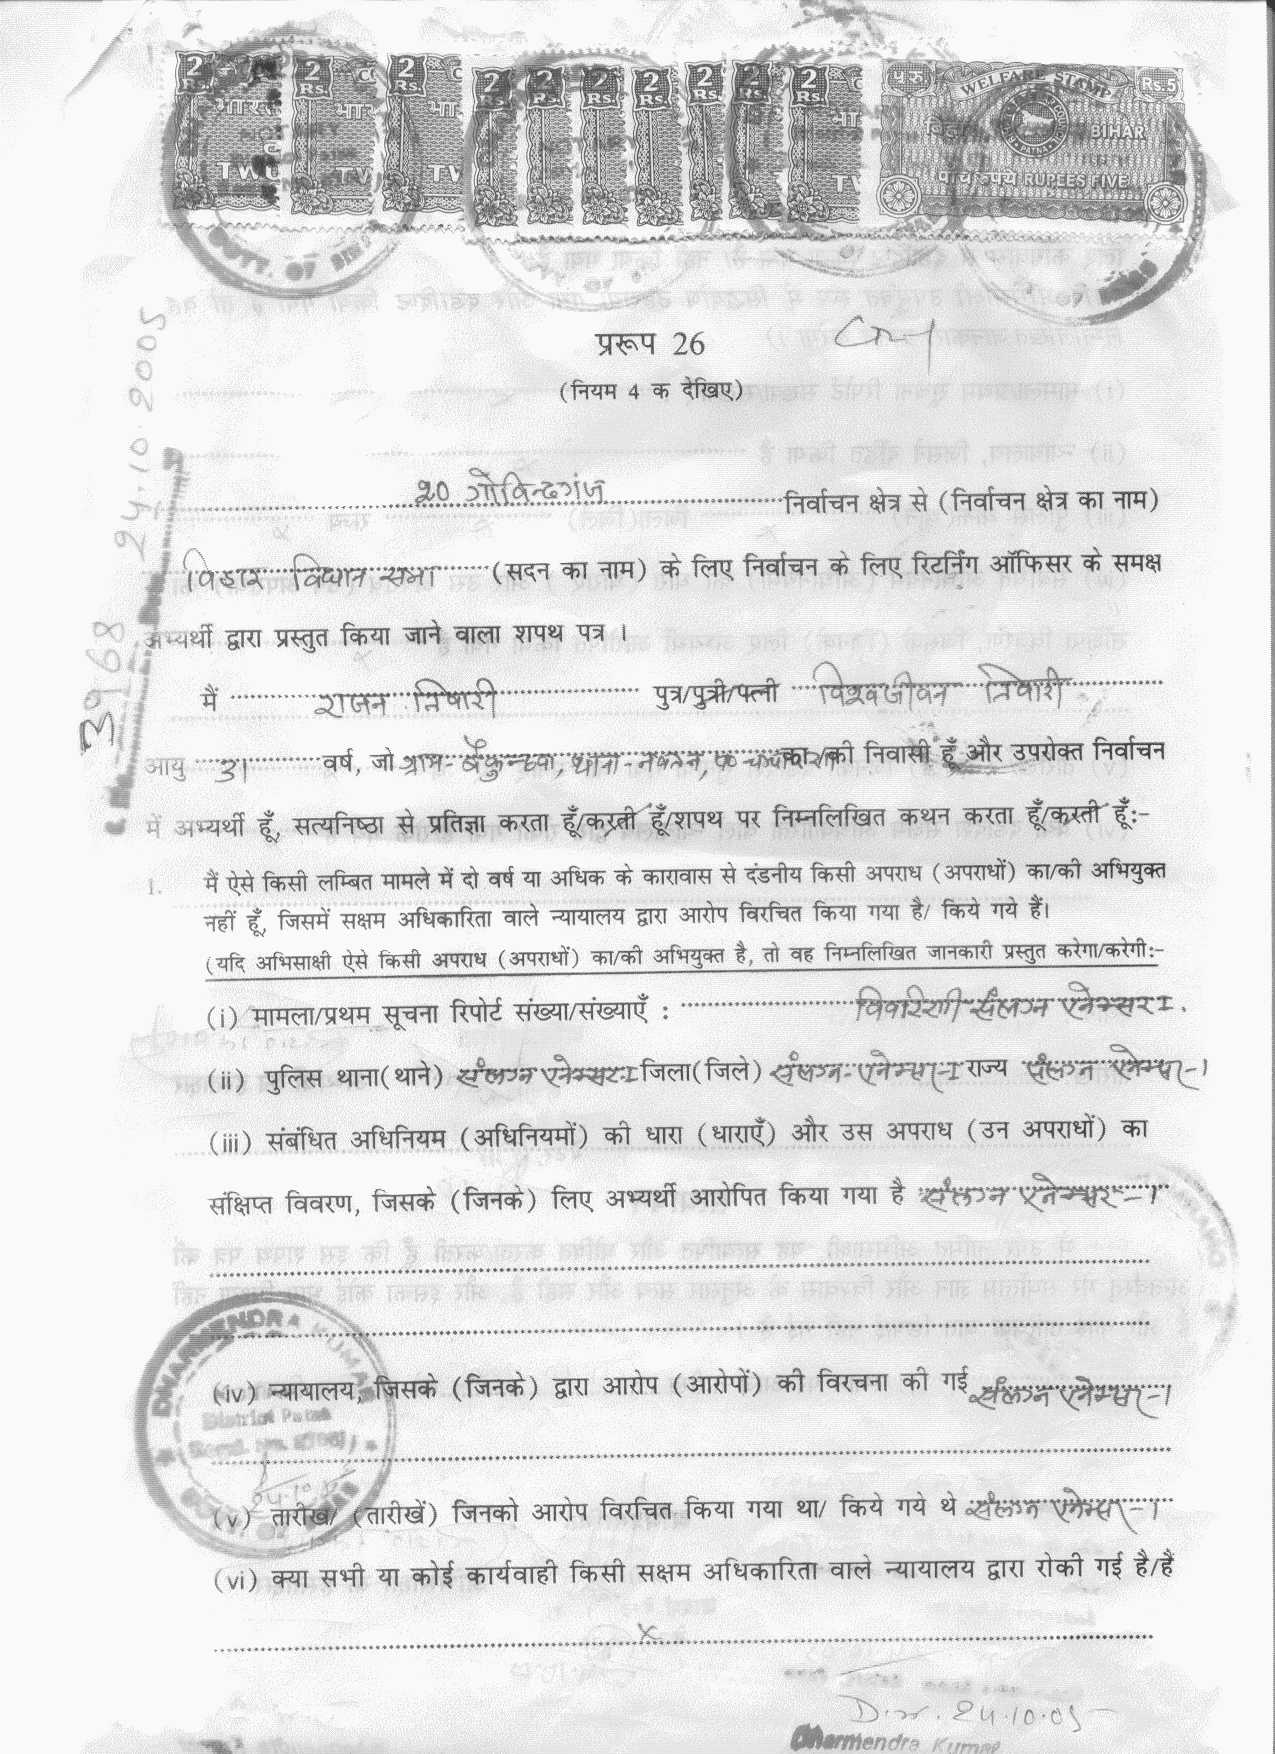 2 Rs. 2 Rs. 2 Rs. 2 Rs. 2 Rs. 2 Rs. 2 Rs. 2 Rs. 2 Rs. 2 Rs. ५ रु WELFARE STAMP Rs.5
BIHAR
पांच रुपये RUPEES FIVE
प्ररूप 26
(नियम 4 क देखिए)
24.10.2005
3968
20 गोविन्दगंज निर्वाचन क्षेत्र से (निर्वाचन क्षेत्र का नाम)
विहार विधान सभा (सदन का नाम) के लिए निर्वाचन के लिए रिटर्निंग ऑफिसर के समक्ष
अभ्यर्थी द्वारा प्रस्तुत किया जाने वाला शपथ पत्र ।
मैं राजन तिवारी पुत्र/पुत्री/पत्नी विश्वजीवन तिवारी
आयु 31 वर्ष, जो ग्राम- थाना- का/की निवासी हूँ और उपरोक्त निर्वाचन
में अभ्यर्थी हूँ, सत्यनिष्ठा से प्रतिज्ञा करता हूँ/करती हूँ/शपथ पर निम्नलिखित कथन करता हूँ/करती हूँ:-
1. मैं ऐसे किसी लम्बित मामले में दो वर्ष या अधिक के कारावास से दंडनीय किसी अपराध (अपराधों) का/की अभियुक्त
नहीं हूँ, जिसमें सक्षम अधिकारिता वाले न्यायालय द्वारा आरोप विरचित किया गया है/ किये गये हैं।
(यदि अभिसाक्षी ऐसे किसी अपराध (अपराधों) का/की अभियुक्त है, तो वह निम्नलिखित जानकारी प्रस्तुत करेगा/करेगी:-
(i) मामला/प्रथम सूचना रिपोर्ट संख्या/संख्याएँ : संलग्न एनेक्सर I.
(ii) पुलिस थाना(थाने) संलग्न एनेक्सर-I जिला(जिले) संलग्न-एनेक्सर-I राज्य संलग्न एनेक्सर-1
(iii) संबंधित अधिनियम (अधिनियमों) की धारा (धाराएँ) और उस अपराध (उन अपराधों) का
संक्षिप्त विवरण, जिसके (जिनके) लिए अभ्यर्थी आरोपित किया गया है संलग्न एनेक्सर-1
DHARMENDRA KUMAR
(iv) न्यायालय, जिसके (जिनके) द्वारा आरोप (आरोपों) की विरचना की गई संलग्न एनेक्सर-1
District Patna
(v) तारीख/ (तारीखें) जिनको आरोप विरचित किया गया था/ किये गये थे संलग्न एनेक्सर-1
(vi) क्या सभी या कोई कार्यवाही किसी सक्षम अधिकारिता वाले न्यायालय द्वारा रोकी गई है/हैं
x
24.10.05
Dharmendra Kumar